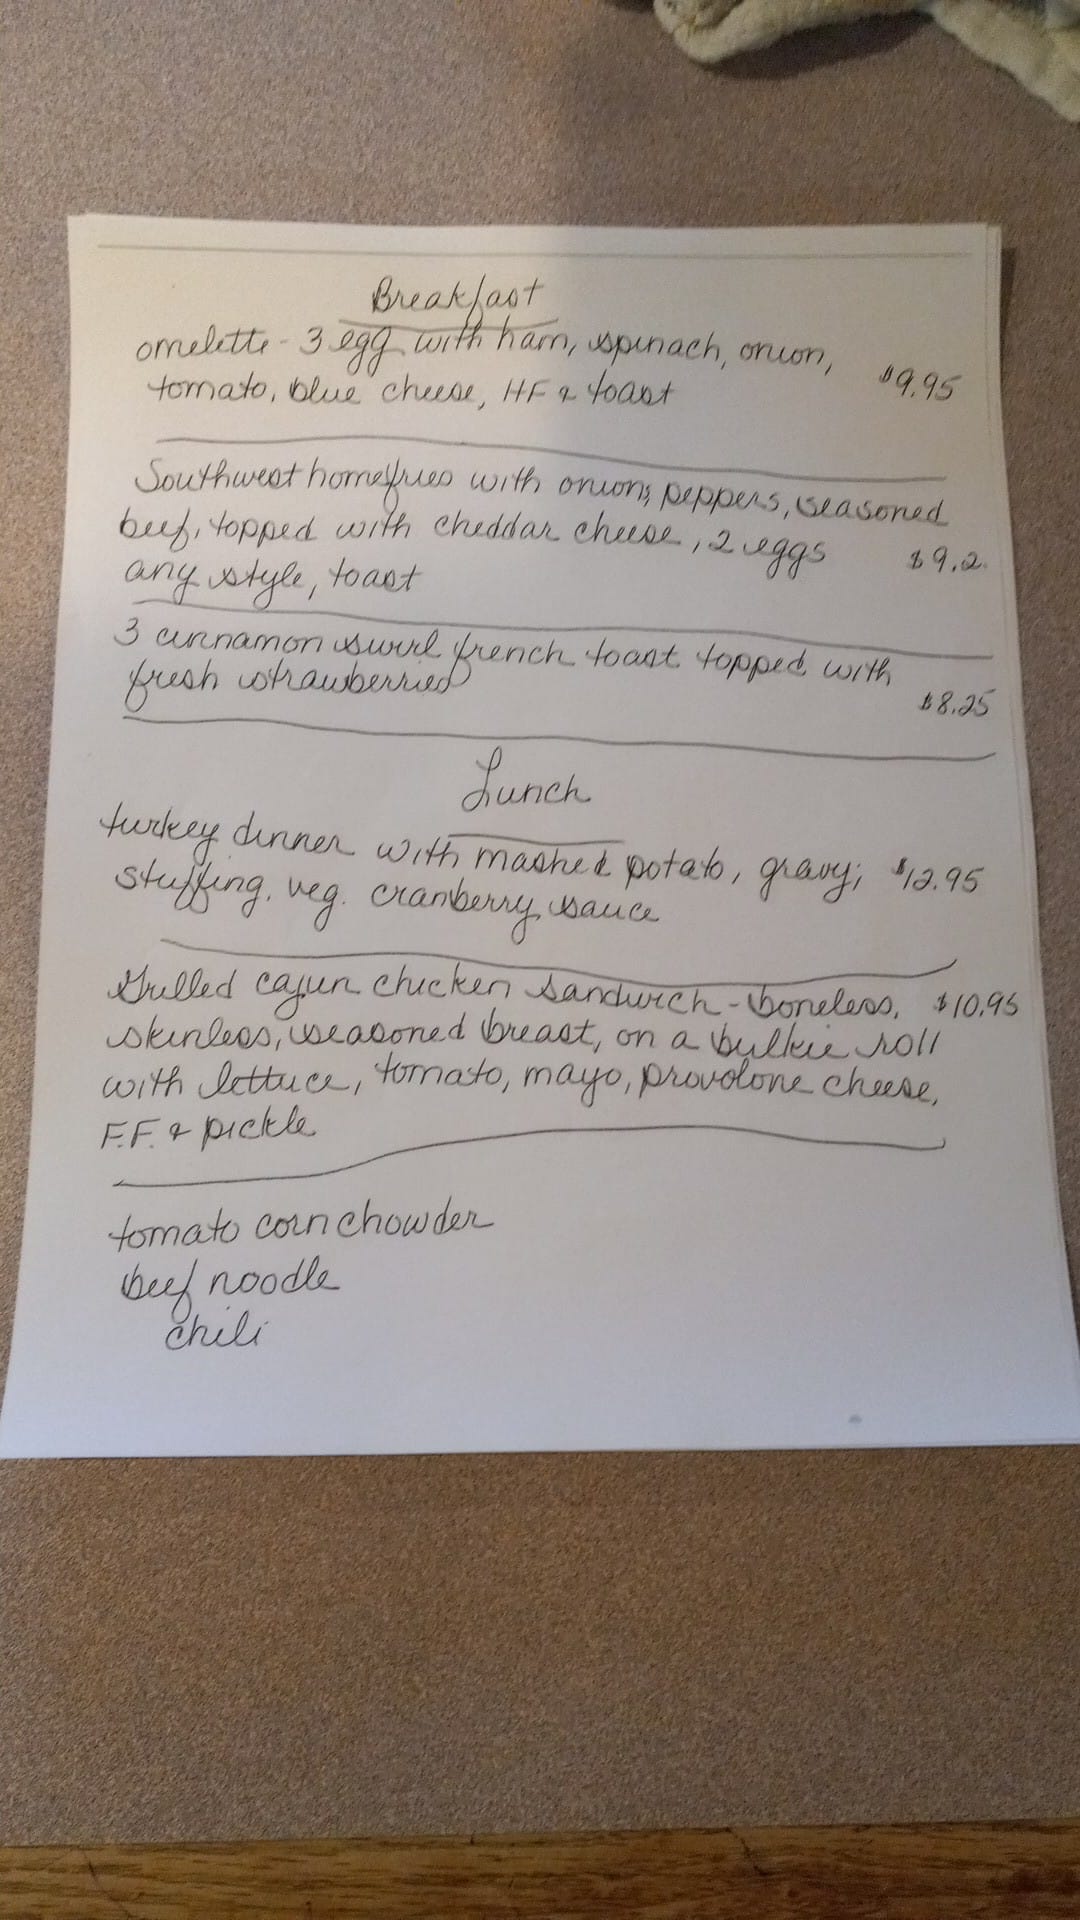 Breakfast
omelette - 3 egg with ham, spinach, onion,
tomato, blue cheese, HF & toast $9.95
Southwest homefries with onions, peppers, seasoned
beef, topped with cheddar cheese, 2 eggs $9.2
any style, toast
3 cinnamon swirl french toast topped with
fresh strawberries $8.25
Lunch
turkey dinner with mashed potato, gravy, $12.95
stuffing, veg. cranberry sauce
Grilled cajun chicken sandwich - boneless, $10.95
skinless, seasoned breast, on a bulkie roll
with lettuce, tomato, mayo, provolone cheese,
F.F. & pickle
tomato corn chowder
beef noodle
chili